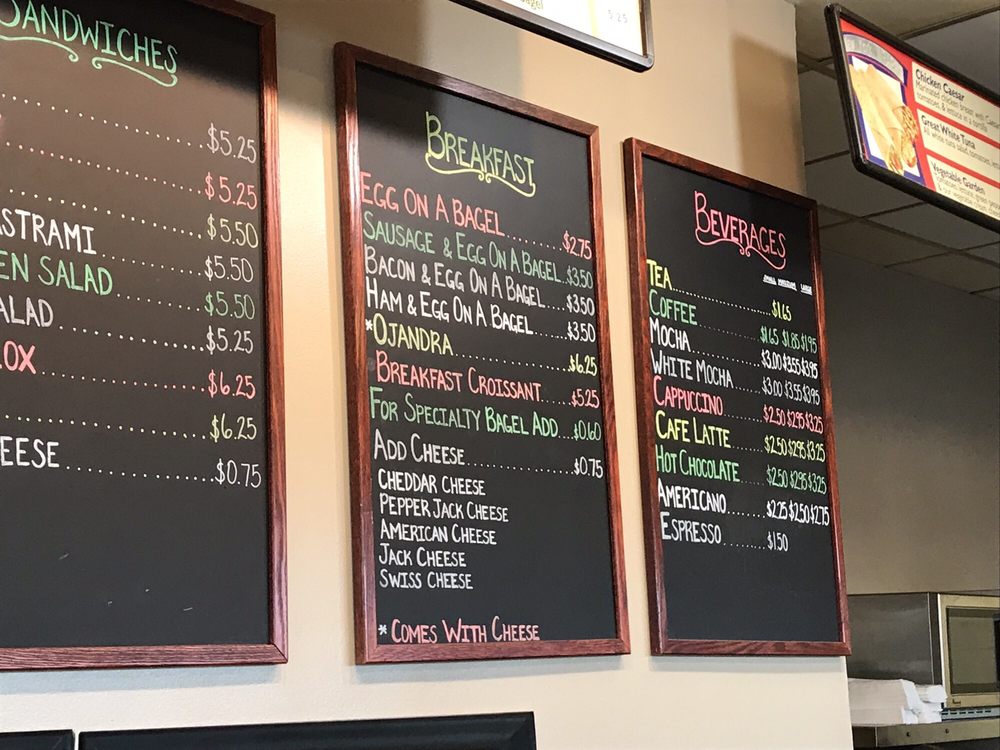 SANDWICHES
$5.25
$5.25
$5.50
ASTRAMI $5.50
EN SALAD $5.50
ALAD $5.25
OX $6.25
$6.25
EESE $0.75
BREAKFAST
EGG ON A BAGEL $2.75
SAUSAGE & EGG ON A BAGEL $3.50
BACON & EGG ON A BAGEL $3.50
HAM & EGG ON A BAGEL $3.50
*OJANDRA $6.25
BREAKFAST CROISSANT $5.25
FOR SPECIALTY BAGEL ADD $0.60
ADD CHEESE $0.75
CHEDDAR CHEESE
PEPPER JACK CHEESE
AMERICAN CHEESE
JACK CHEESE
SWISS CHEESE
* COMES WITH CHEESE
BEVERAGES
SMALL MEDIUM LARGE
TEA $1.65
COFFEE $1.65 $1.85 $1.95
MOCHA $3.00 $3.55 $3.95
WHITE MOCHA $3.00 $3.55 $3.95
CAPPUCCINO $2.50 $2.95 $3.25
CAFE LATTE $2.50 $2.95 $3.25
HOT CHOCOLATE $2.50 $2.95 $3.25
AMERICANO $2.25 $2.50 $2.75
ESPRESSO $1.50
agel 5.25
Chicken Caesar
Marinated chicken breast with
tomatoes, & lettuce in a tortilla
Great White Tuna
All white tuna salad, tomatoes,
Vegetable Garden